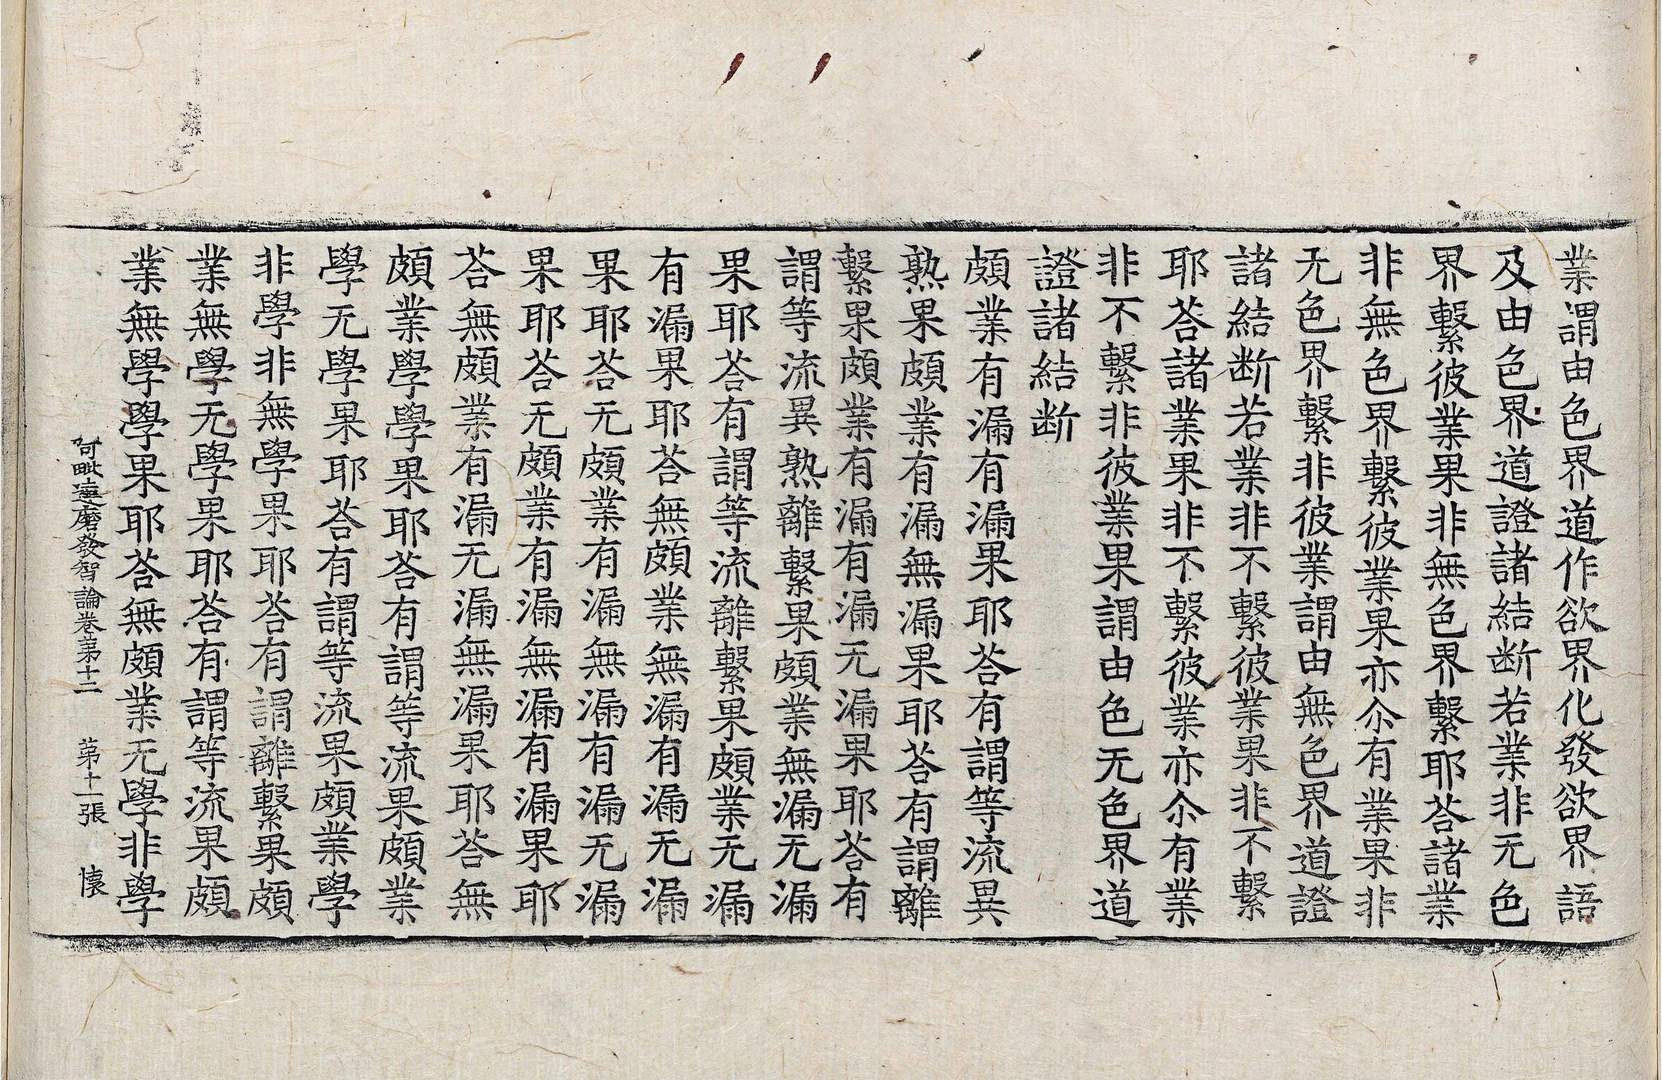 業謂由色界道作欲界化發欲界語
及由色界道證諸結断若業非无色
界繫彼業果非無色界繫耶荅諸業
非無色界繫彼業果亦尒有業果非
无色界繫非彼業謂由無色界道證
諸結断若業非不繫彼業果非不繫
耶荅諸業果非不繫彼業亦尒有業
非不繫非彼業果謂由色无色界道
證諸結断
頗業有漏有漏果耶荅有謂等流異
熟果頗業有漏無漏果耶荅有謂離
繫果頗業有漏有漏无漏果耶荅有
謂等流異熟離繫果頗業無漏无漏
果耶荅有謂等流離繫果頗業无漏
有漏果耶荅無頗業無漏有漏无漏
果耶荅无頗業有漏無漏有漏无漏
果耶荅无頗業有漏無漏有漏果耶
荅無頗業有漏无漏無漏果耶荅無
頗業學學果耶荅有謂等流果頗業
學无學果耶荅有謂等流果頗業學
非學非無學果耶荅有謂離繫果頗
業無學无學果耶荅有謂等流果頗
業無學學果耶荅無頗業无學非學
阿毗達磨發智論卷第十二 第十一張 懐